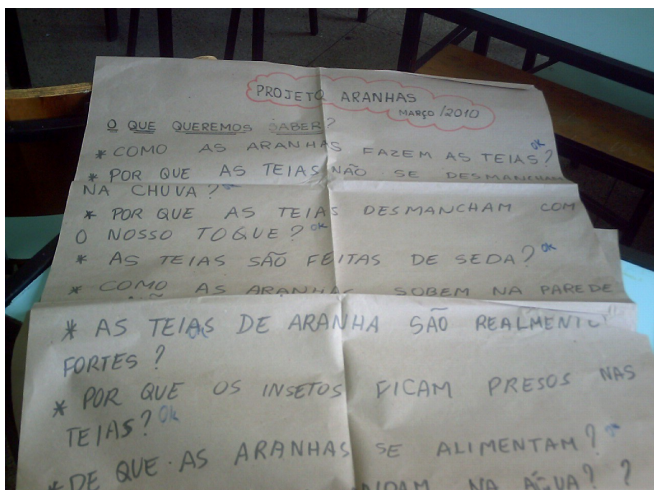 PROJETO ARANHAS
MARÇO/2010
O QUE QUEREMOS SABER?
* COMO AS ARANHAS FAZEM AS TEIAS? OK
* POR QUE AS TEIAS NÃO SE DESMANCHAM
NA CHUVA?
* POR QUE AS TEIAS DESMANCHAM COM
O NOSSO TOQUE? OK
* AS TEIAS SÃO FEITAS DE SEDA? OK
* COMO AS ARANHAS SOBEM NA PAREDE
* AS TEIAS DE ARANHA SÃO REALMENTE
FORTES? OK
* POR QUE OS INSETOS FICAM PRESOS NAS
TEIAS? OK
* DE QUE AS ARANHAS SE ALIMENTAM?
NA ÁGUA? ?